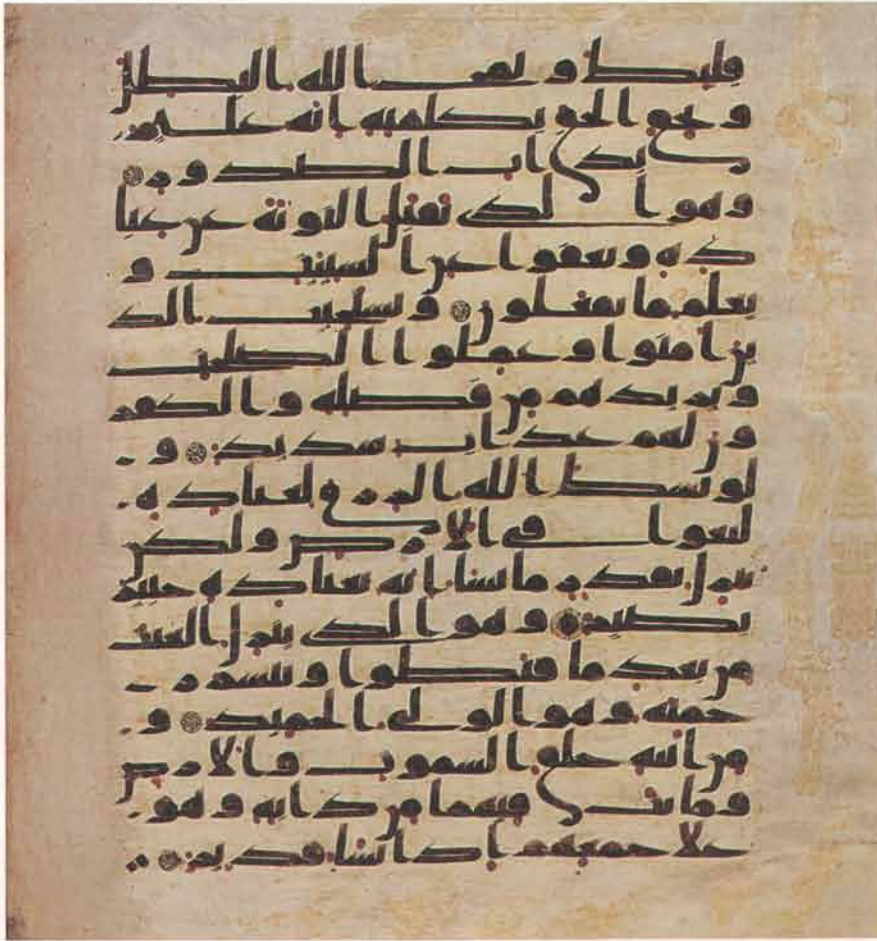 قلبك ويمح الله البطل
ويحق الحق بكلمته انه عليم
بذات الصدور
وهو الذي يقبل التوبة عن عبا
ده ويعفوا عن السيئت و
يعلم ما تفعلون ويستجيب الذ
ين امنوا وعملوا الصلحت
ويزيدهم من فضله والكفر
ون لهم عذاب شديد و
لو بسط الله الرزق لعباده
لبغوا في الارض ولكن
ينزل بقدر ما يشا انه بعباده خبير
بصير وهو الذي ينزل الغيث
من بعد ما قنطوا وينشر ر
حمته وهو الولي الحميد و
من ايته خلق السموت والارض
وما بث فيهما من دابة وهو
على جمعهم اذا يشا قدير و